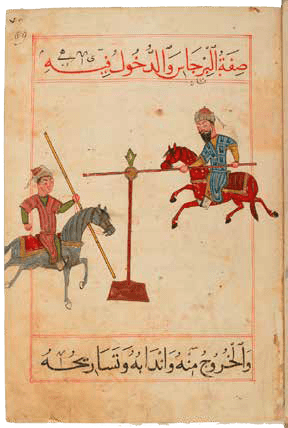 صفة البرجاس والدخول فيه
والخروج منه واندابه وتساريحه